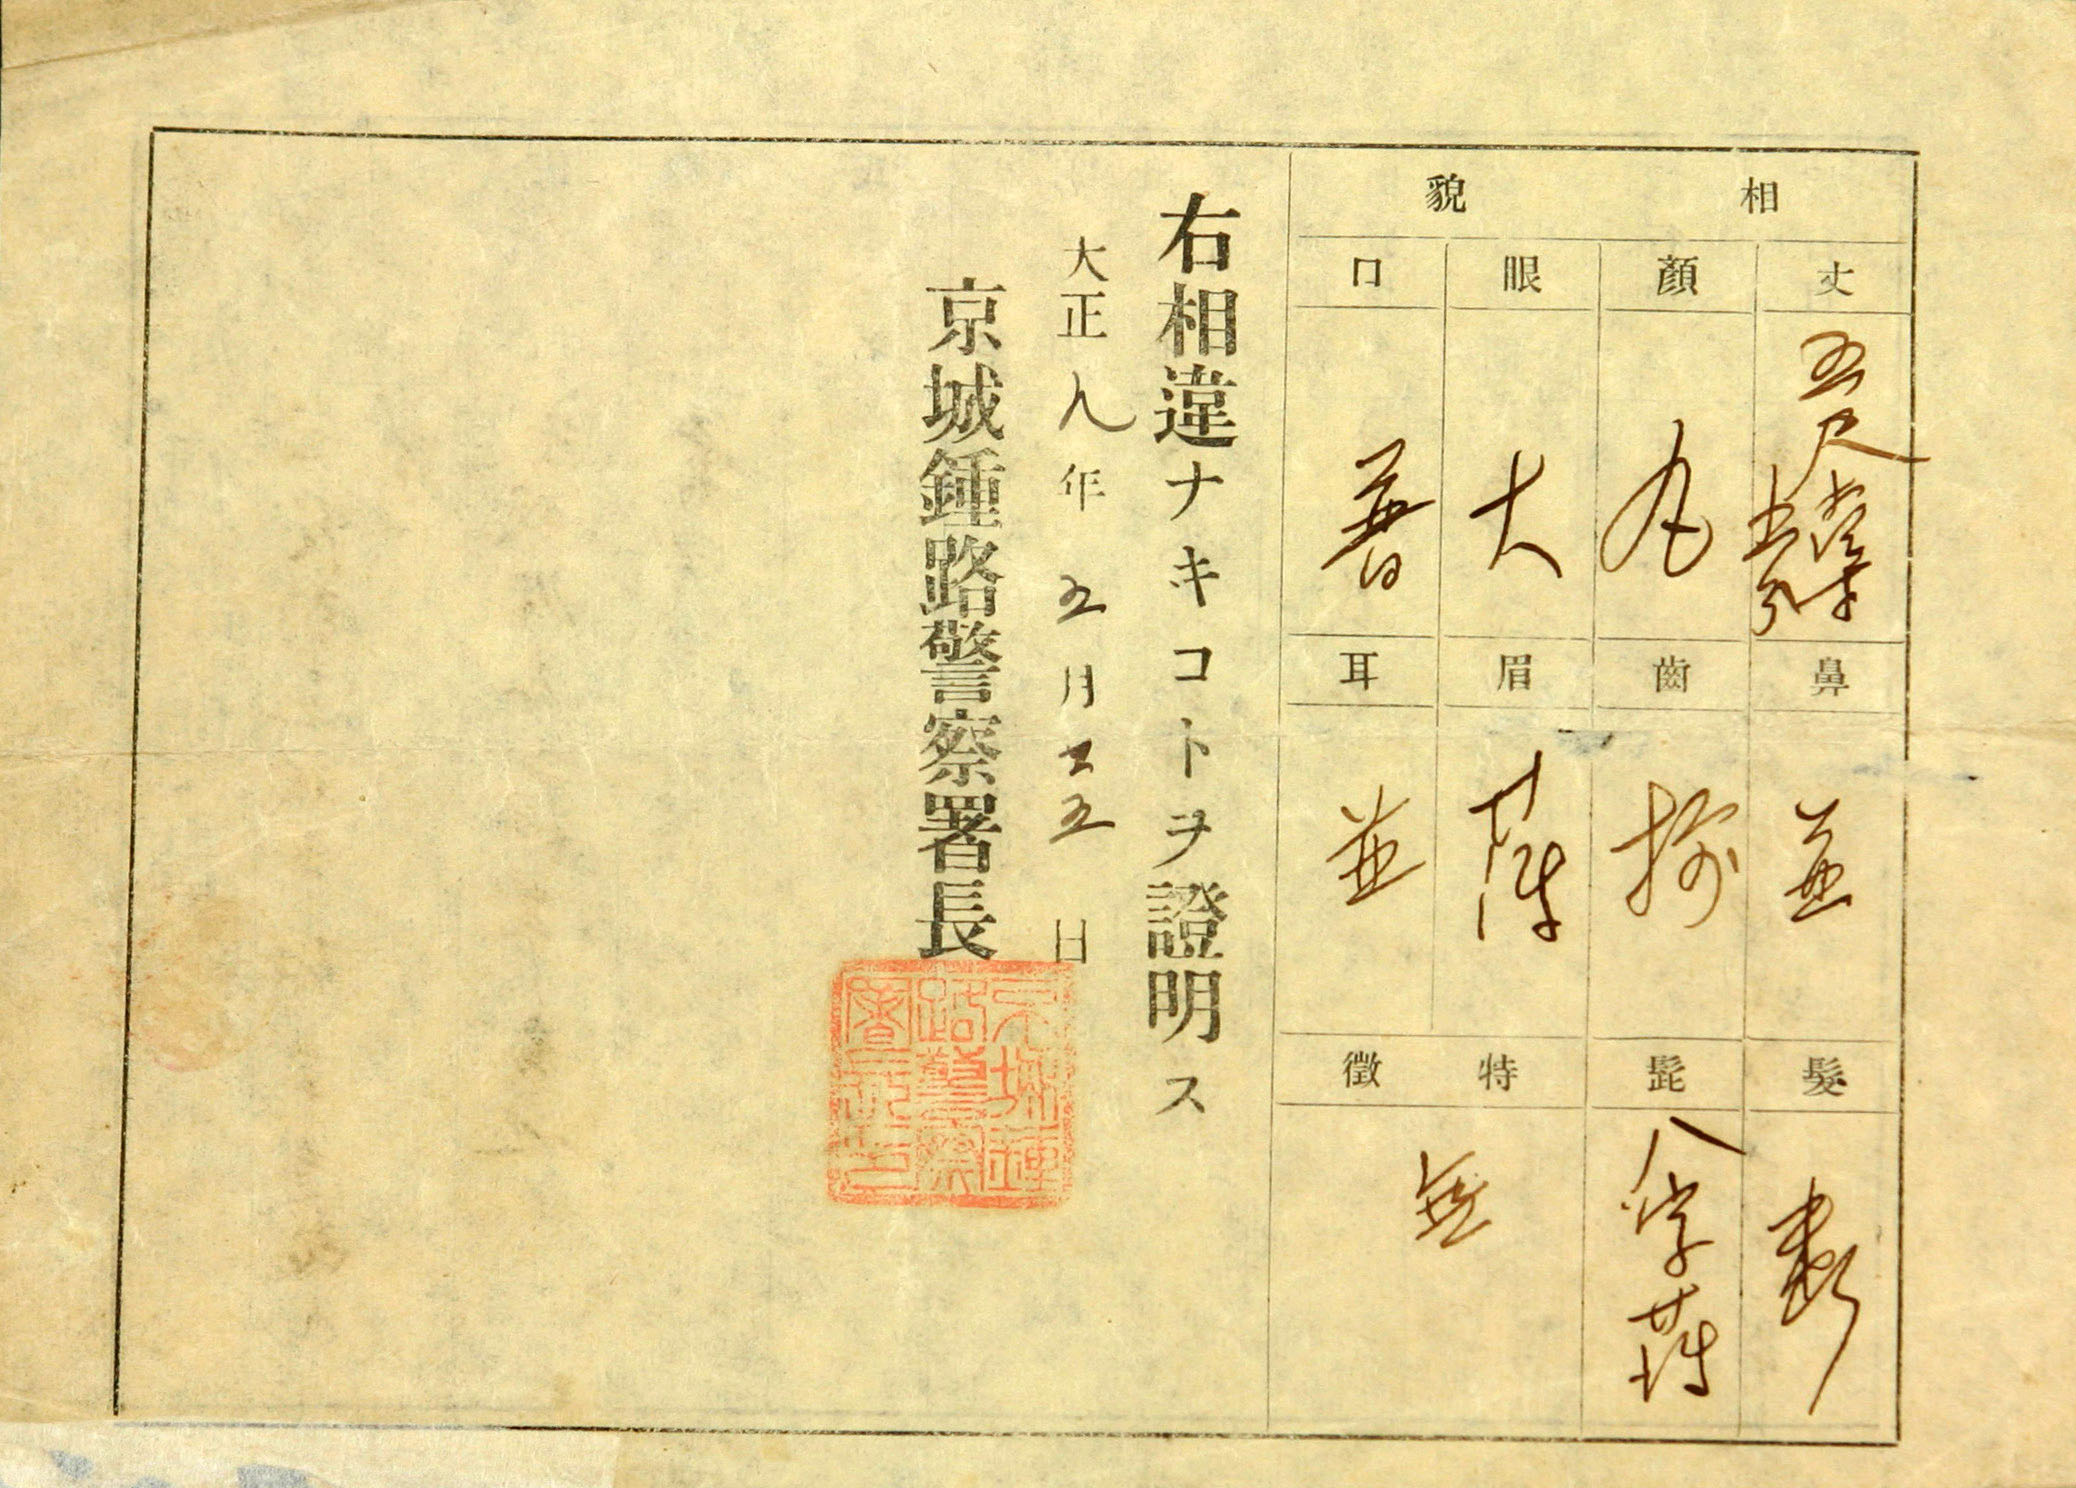 相貌
丈
五尺
顏
丸
眼
大
口
普
鼻
並
齒
揃
眉
薄
耳
並
髮
髭
八字薄
特徵
無
右相違ナキコトヲ證明ス
大正八年五月十五日
京城鍾路警察署長
京城鍾路警察署長之印